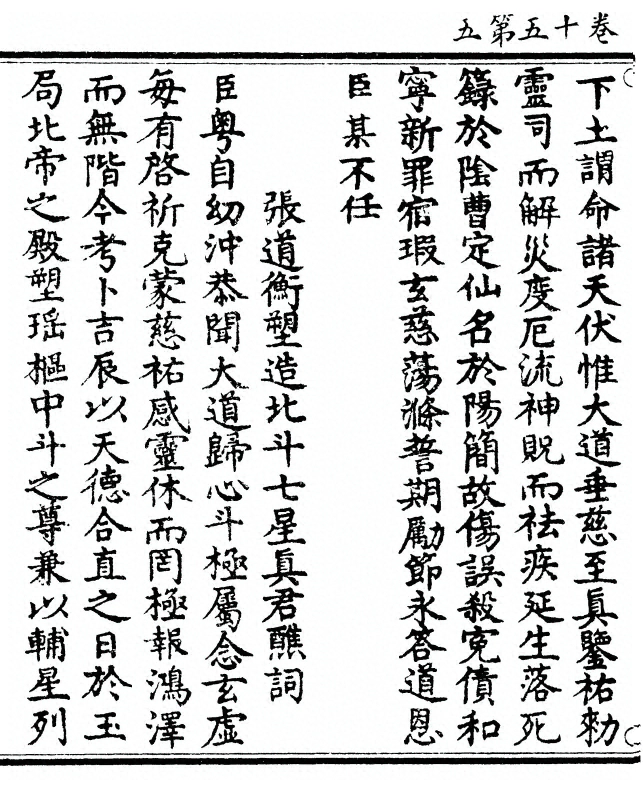 卷十五第五
下土謂命諸天伏惟大道垂慈至真鑒祐勑
靈司而解災度厄流神貺而祛疾延生落死
籙於陰曹定仙名於陽簡故傷誤殺寃債和
寧新罪宿瑕玄慈蕩滌誓期勵節永答道恩
臣某不任
張道衡塑造北斗七星真君醮詞
臣粤自幼沖恭聞大道歸心斗極屬念玄虛
每有啓祈克蒙慈祐感靈休而罔極報鴻澤
而無階今考卜吉辰以天德合直之日於玉
局北帝之殿塑瑶樞中斗之尊兼以輔星列